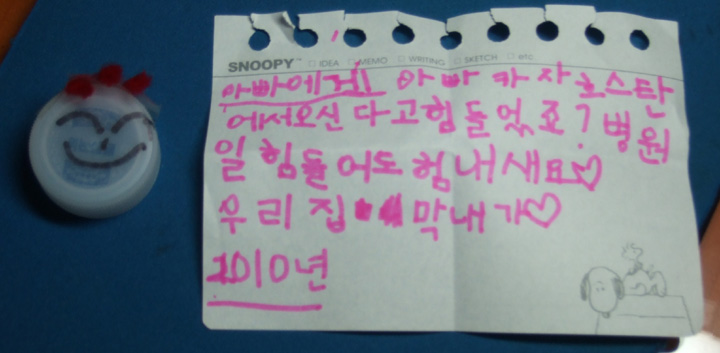 SNOOPY™ □ IDEA □ MEMO □ WRITING □ SKETCH □ etc.
아빠에게! 아빠 카자흐스탄
에서오신 다고힘들었죠? 병원
일 힘들어도 힘내새요♡
우리집 막내가♡
2010년